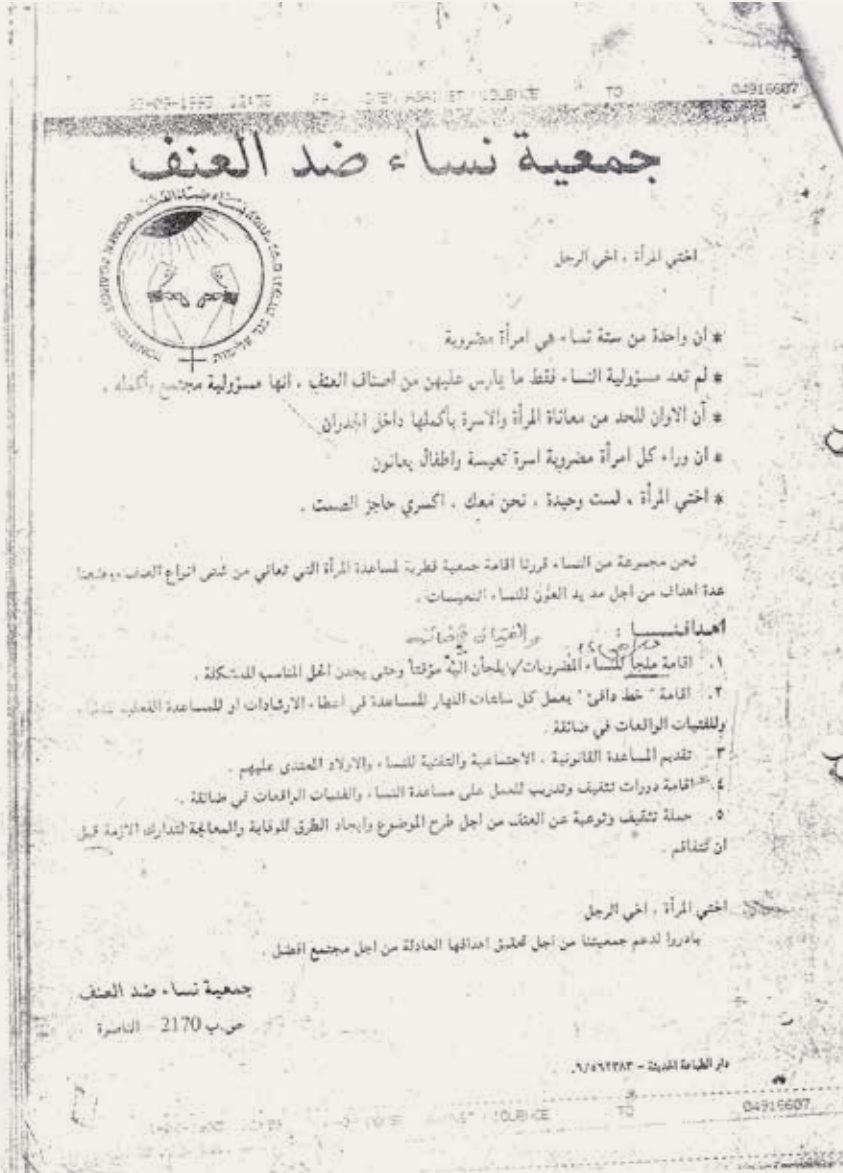 TO 04916607
جمعية نساء ضد العنف
WOMEN AGAINST
اختي المرأة ، اخي الرجل
* ان واحدة من ستة نساء هي امرأة مضروبة
* لم تعد مسؤولية النساء فقط ما يارس عليهن من اصناف العنف ، انها مسؤولية مجتمع بأكمله .
* آن الاوان للحد من معاناة المرأة والاسرة بأكملها داخل الجدران
* ان وراء كل امرأة مضروبة اسرة تعيسة واطفال يعانون
* اختي المرأة ، لست وحيدة ، نحن معك ، اكسري حاجز الصمت .
نحن مجموعة من النساء قررنا اقامة جمعية قطرية لمساعدة المرأة التي تعاني من شتى انواع العنف ووضعنا
عدة اهداف من اجل مد يد العون للنساء التعيسات .
اهدافنـــا :
١. اقامة ملجأ للنساء المضروبات يلجأن اليه مؤقتاً وحتى يجدن الحل المناسب للمشكلة .
٢. اقامة " خط دافئ " يعمل كل ساعات النهار للمساعدة في اعطاء الارشادات او للمساعدة الفعلية للنساء
وللفتيات الواقعات في ضائقة .
٣. تقديم المساعدة القانونية ، الاجتماعية والتفنية للنساء والاولاد المعتدى عليهم .
٤. اقامة دورات تثقيف وتدريب للعمل على مساعدة النساء والفتيات الواقعات في ضائقة .
٥. حملة تثقيف وتوعية عن العنف من اجل طرح الموضوع وايجاد الطرق للوقاية والمعالجة لتدارك الازمة قبل
ان تتفاقم .
اختي المرأة ، اخي الرجل
بادروا لدعم جمعيتنا من اجل تحقيق اهدافها العادلة من اجل مجتمع افضل .
جمعية نساء ضد العنف
ص.ب 2170 - الناصرة
دار الطباعة الحديثة - ٠٦/٥٦٢٣٨٣
TO 04916607